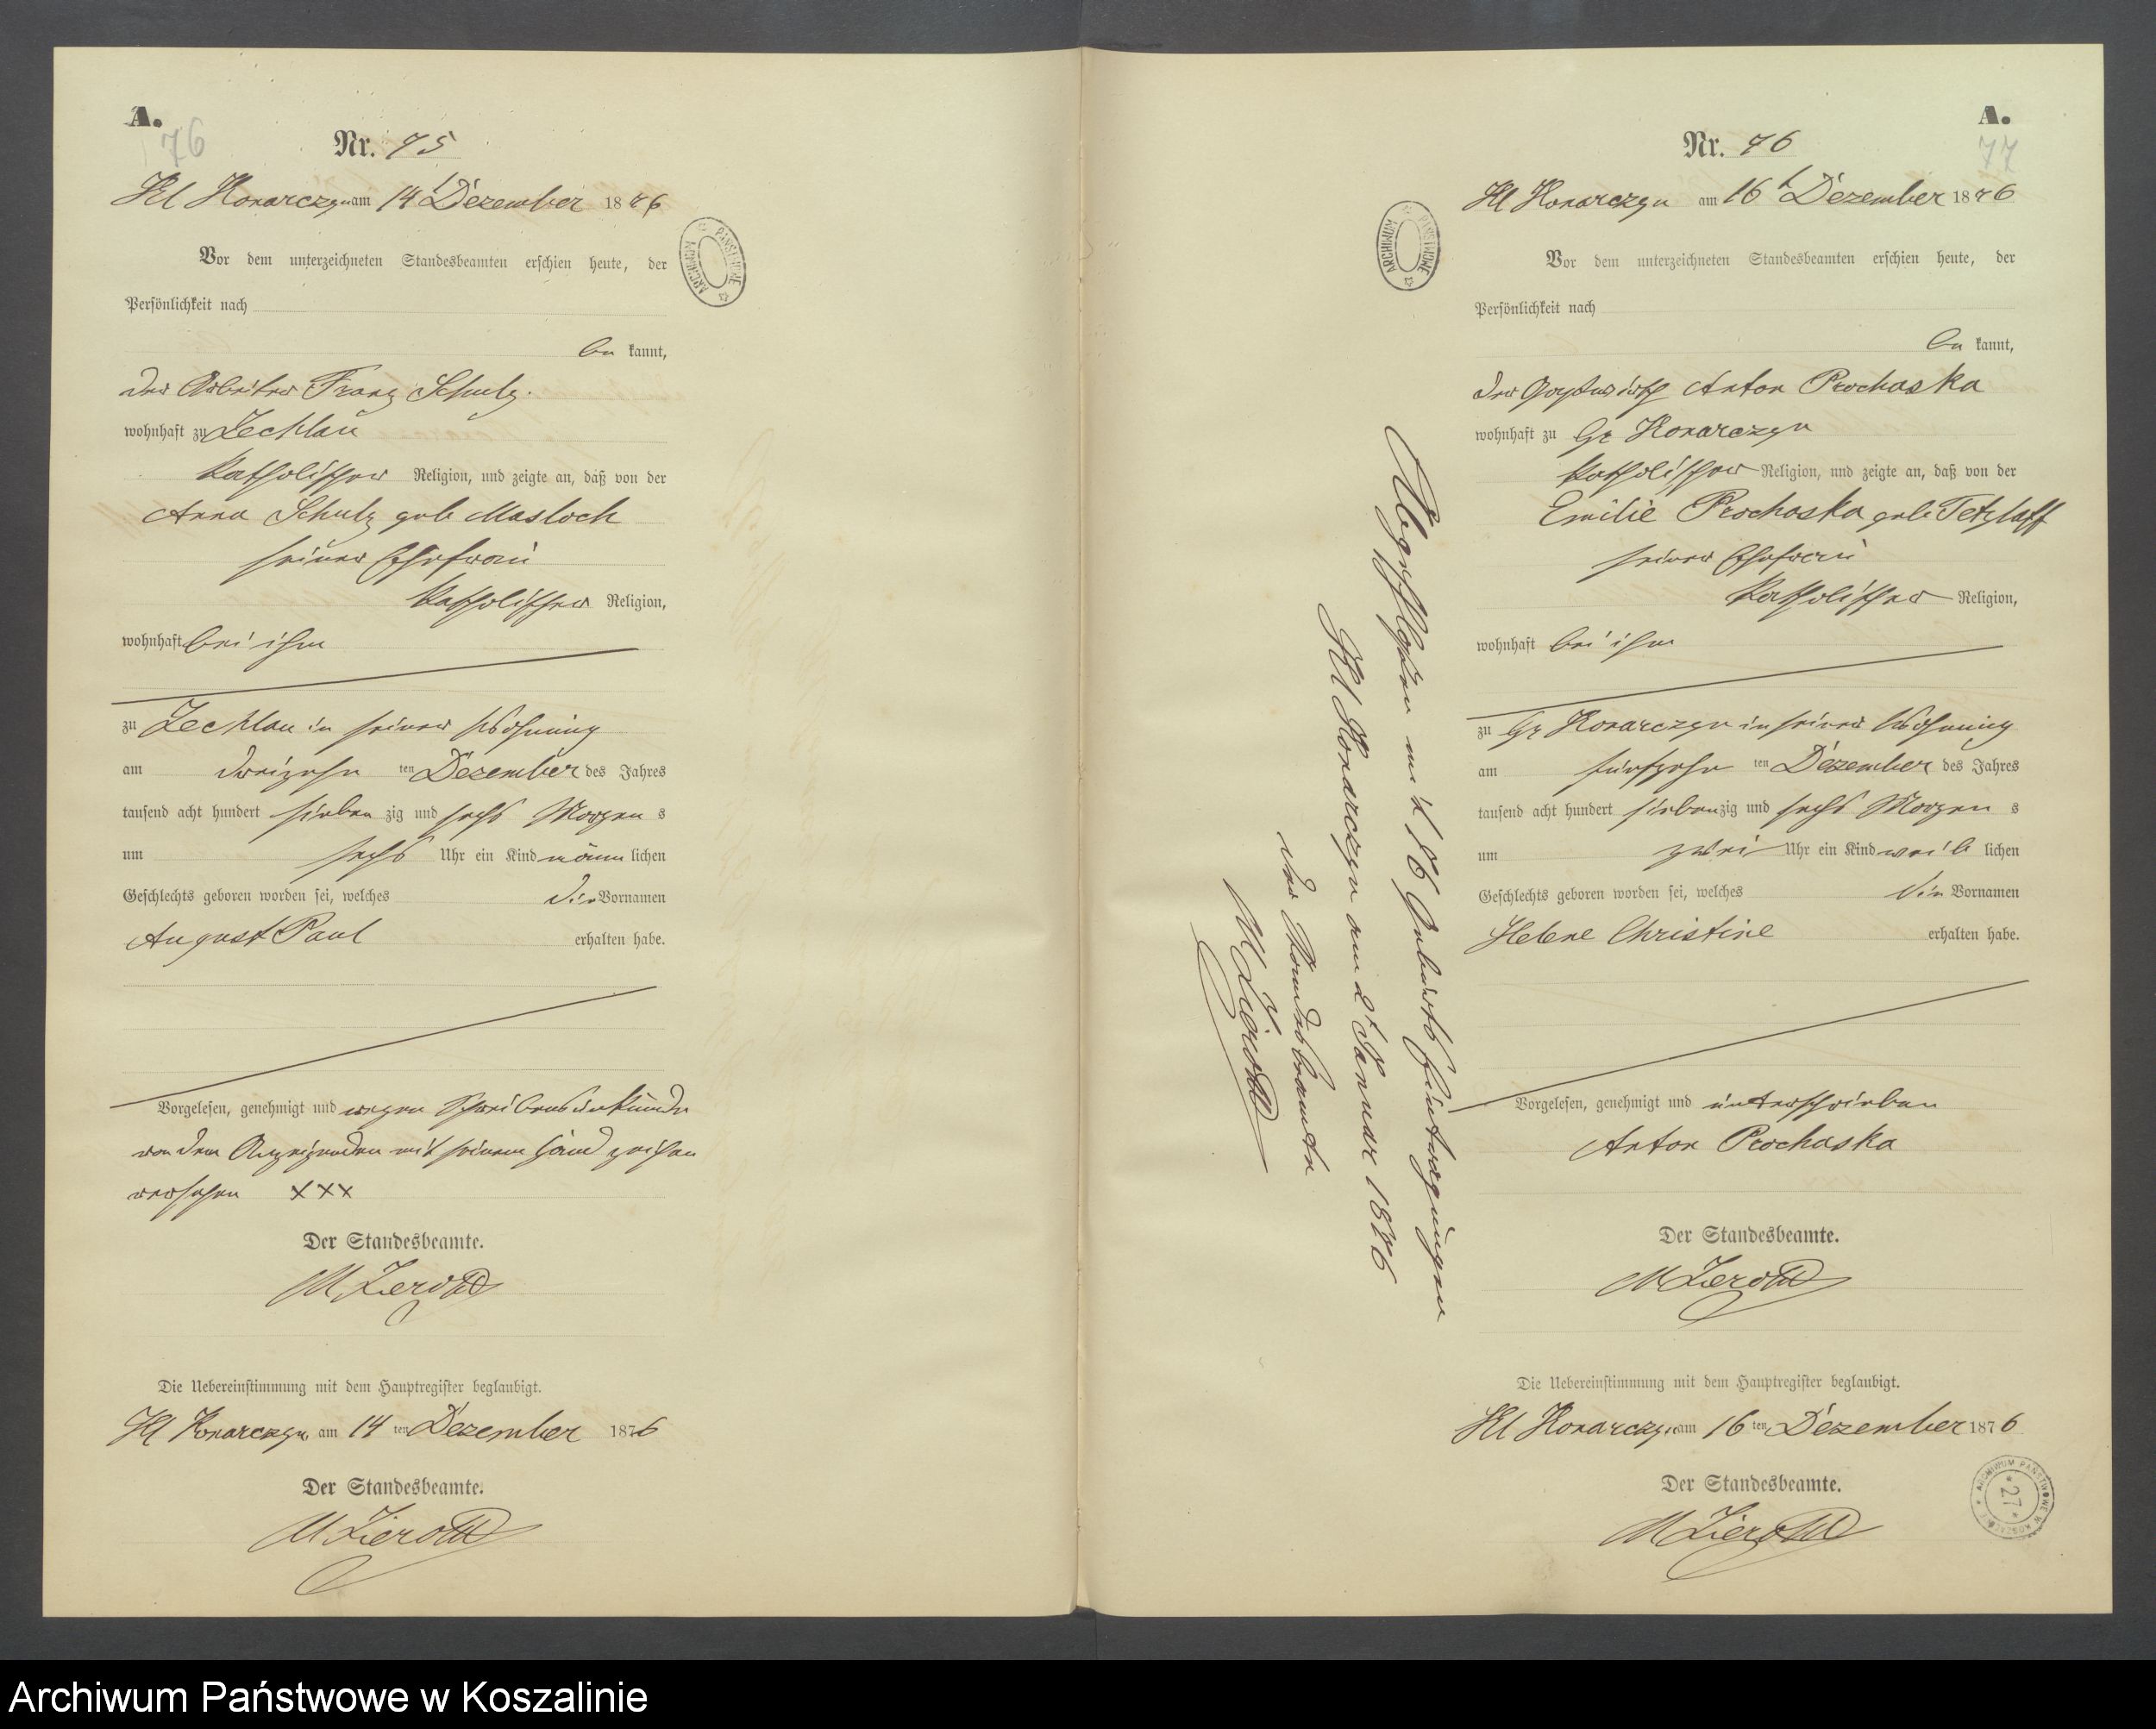 A.
76
Nr. 75
Kl Konarczyn am 14t Dezember 1876
Vor dem unterzeichneten Standesbeamten erschien heute, der
Persönlichkeit nach
be kannt,
der Arbeiter Franz Schulz.
wohnhaft zu Zechlau
katholischer Religion, und zeigte an, daß von der
Anna Schulz geb Masloch
seiner Ehefrau
katholischer Religion,
wohnhaft bei ihm
zu Zechlau in seiner Wohnung
am dreizehn ten Dezember des Jahres
tausend acht hundert sieben zig und sechs Morgen s
um sechs Uhr ein Kind männ lichen
Geschlechts geboren worden sei, welches die Vornamen
August Paul erhalten habe.
Vorgelesen, genehmigt und wegen Schreibensunkunde
von dem Anzeigenden mit seinem Handzeichen
versehen XXX
Der Standesbeamte.
M Zierott
Die Uebereinstimmung mit dem Hauptregister beglaubigt.
Kl Konarczyn am 14 ten Dezember 1876
Der Standesbeamte.
M Zierott
ARCHIWUM PAŃSTWOWE
A.
77
Nr. 76
Kl Konarczyn am 16t Dezember 1876
Vor dem unterzeichneten Standesbeamten erschien heute, der
Persönlichkeit nach
be kannt,
der Gastwirth Anton Prochaska
wohnhaft zu Gr Konarczyn
katholischer Religion, und zeigte an, daß von der
Emilie Prochaska geb Tetzlaff
seiner Ehefrau
katholischer Religion,
wohnhaft bei ihm
zu Gr Konarczyn in seiner Wohnung
am fünfzehn ten Dezember des Jahres
tausend acht hundert sieben zig und sechs Morgen s
um zwei Uhr ein Kind weib lichen
Geschlechts geboren worden sei, welches die Vornamen
Helene Christine erhalten habe.
Vorgelesen, genehmigt und unterschrieben
Anton Prochaska
Der Standesbeamte.
M Zierott
Die Uebereinstimmung mit dem Hauptregister beglaubigt.
Kl Konarczyn am 16 ten Dezember 1876
Der Standesbeamte.
M Zierott
ARCHIWUM PAŃSTWOWE
Abgeschlossen mit 76 Geburts Eintragungen
Kl Konarczyn am 2t Januar 1876
der Standesbeamte
M Zierott
ARCHIWUM PAŃSTWOWE W KOSZALINIE
* 27 *
Archiwum Państwowe w Koszalinie